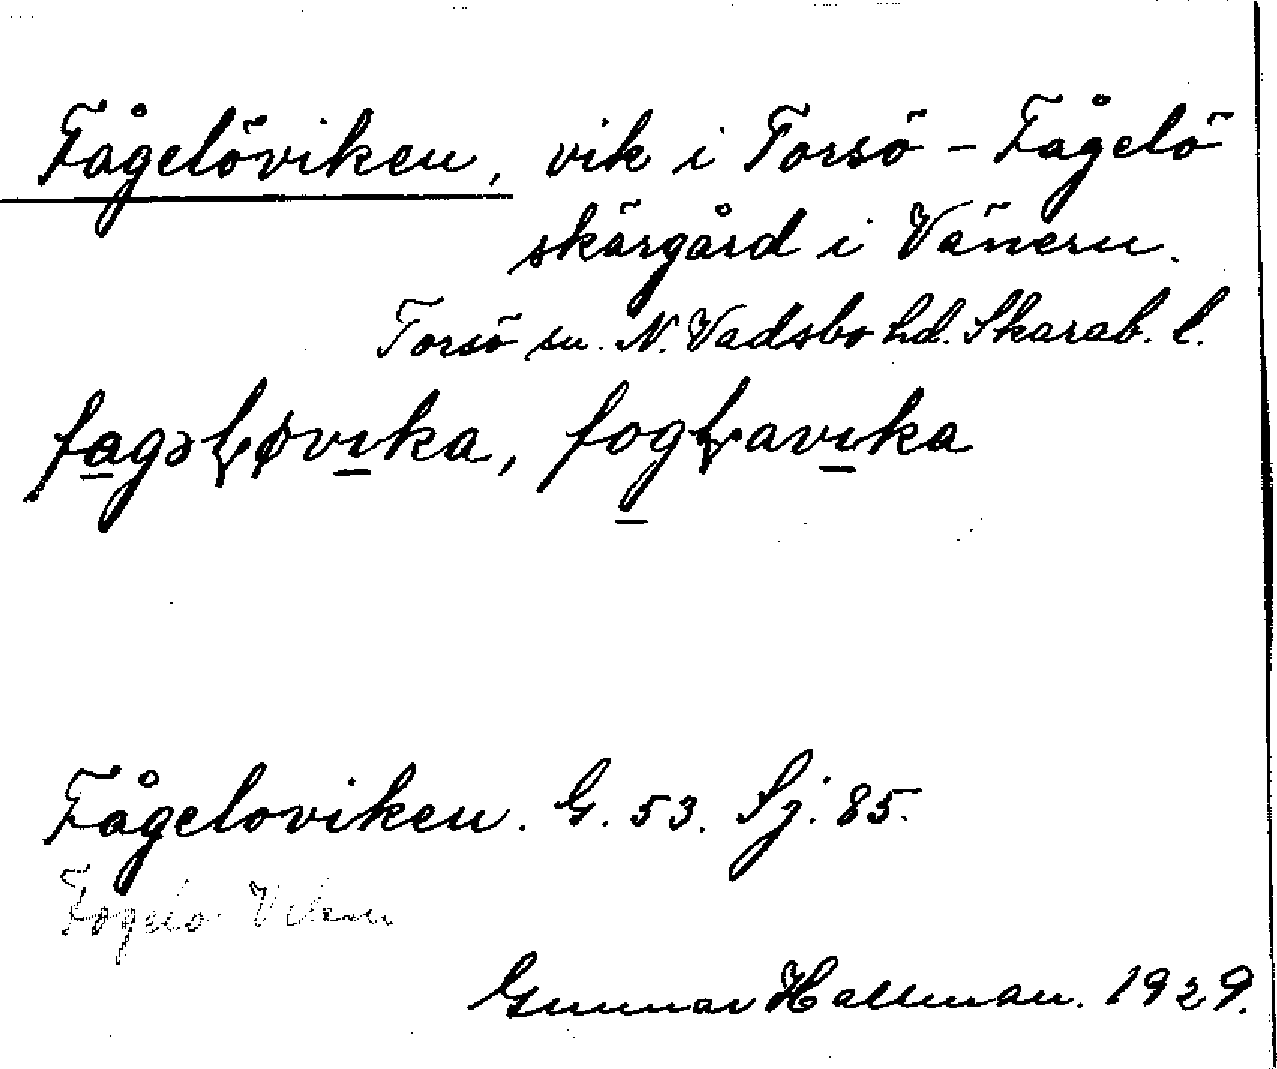 Fågelöviken, vik i Torsö - Fågelö
skärgård i Vänern.
Torsö sn. N. Vadsbo hd. Skarab. l.
fagəłøvika, fogłavika
Fågeloviken. G. 53. Sj. 85.
Fogelo Viken
Gunnar Hallman. 1929.